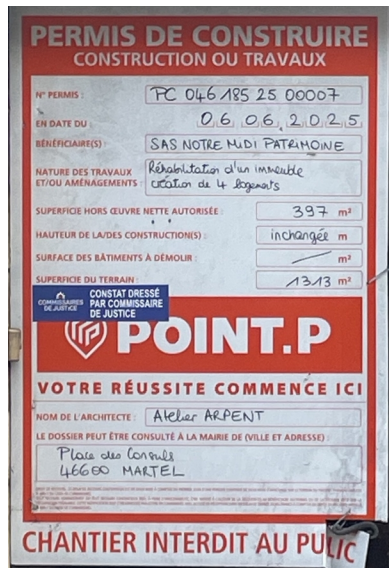 PERMIS DE CONSTRUIRE
CONSTRUCTION OU TRAVAUX
N° PERMIS : PC 046 185 25 00007
EN DATE DU : 06.06.2025
BÉNÉFICIAIRE(S) : SAS NOTRE MIDI PATRIMOINE
NATURE DES TRAVAUX Réhabilitation d'un immeuble
ET/OU AMÉNAGEMENTS : création de 4 logements
SUPERFICIE HORS ŒUVRE NETTE AUTORISÉE : 397 m²
HAUTEUR DE LA/DES CONSTRUCTION(S) : inchangée m
SURFACE DES BÂTIMENTS À DÉMOLIR : — m²
SUPERFICIE DU TERRAIN : 1313 m²
COMMISSAIRES
DE JUSTICE
CONSTAT DRESSÉ
PAR COMMISSAIRE
DE JUSTICE
POINT.P
VOTRE RÉUSSITE COMMENCE ICI
NOM DE L'ARCHITECTE : Atelier ARPENT
LE DOSSIER PEUT ÊTRE CONSULTÉ À LA MAIRIE DE (VILLE ET ADRESSE) :
Place des Consuls
46600 MARTEL
CHANTIER INTERDIT AU PULIC